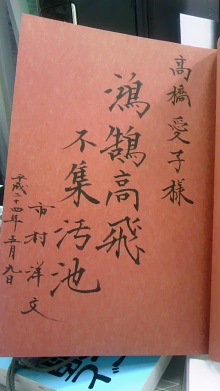 高橋愛子様
鴻鵠高飛
不集汚池
市村洋文
平成二十四年五月九日